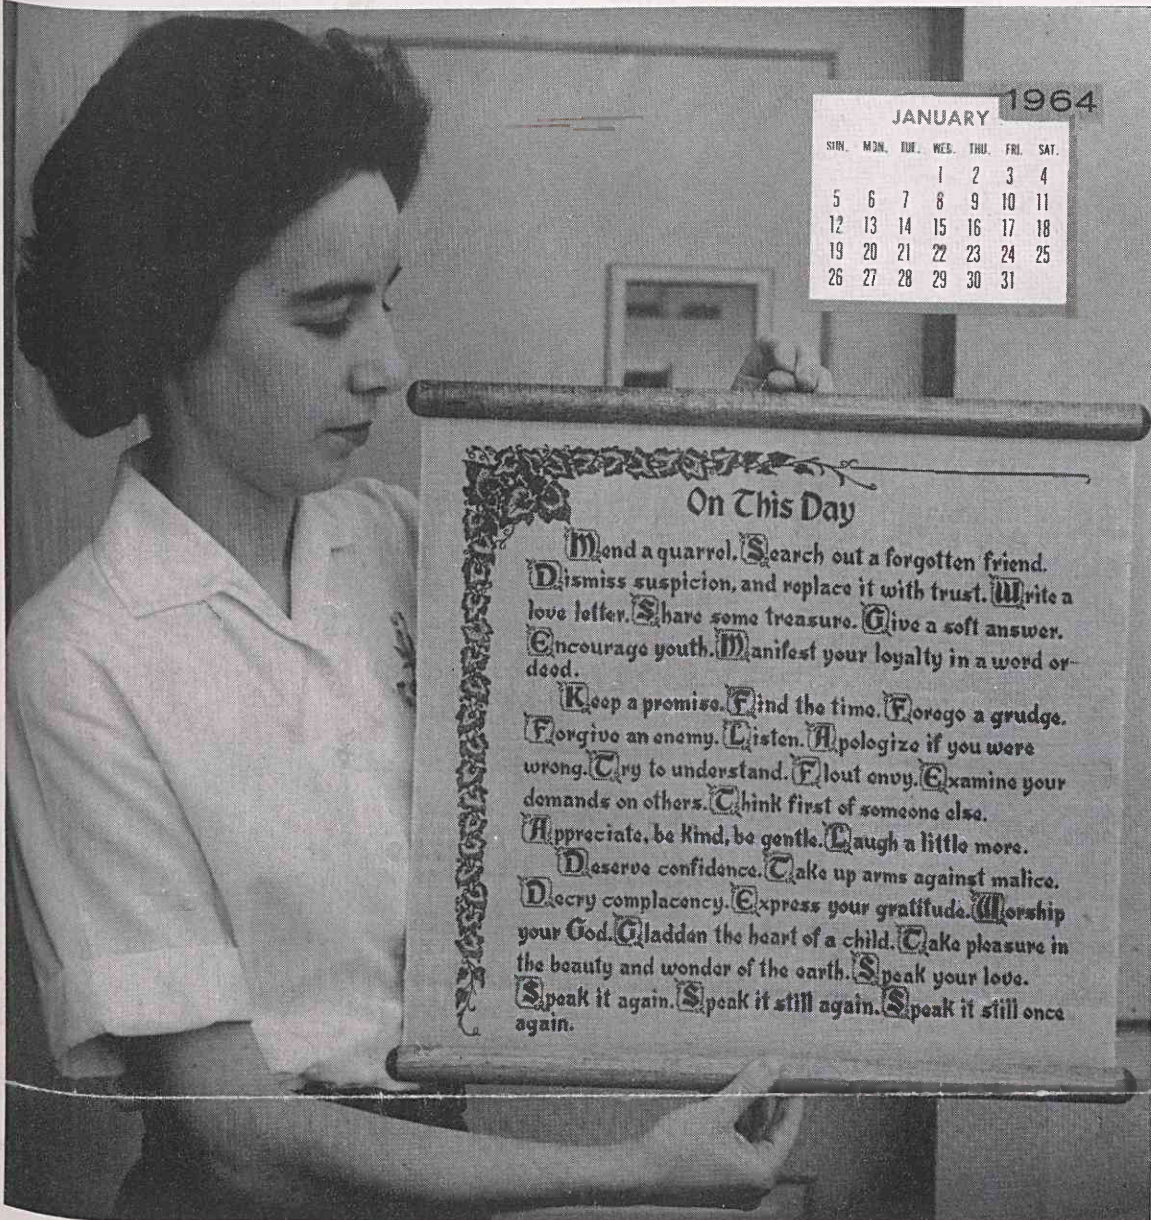 1964
JANUARY
SUN. MON. TUE. WED. THU. FRI. SAT.
1 2 3 4
5 6 7 8 9 10 11
12 13 14 15 16 17 18
19 20 21 22 23 24 25
26 27 28 29 30 31
On This Day
Mend a quarrel. Search out a forgotten friend.
Dismiss suspicion, and replace it with trust. Write a
love letter. Share some treasure. Give a soft answer.
Encourage youth. Manifest your loyalty in a word or
deed.
Keep a promise. Find the time. Forego a grudge.
Forgive an enemy. Listen. Apologize if you were
wrong. Try to understand. Flout envy. Examine your
demands on others. Think first of someone else.
Appreciate, be kind, be gentle. Laugh a little more.
Deserve confidence. Take up arms against malice.
Decry complacency. Express your gratitude. Worship
your God. Gladden the heart of a child. Take pleasure in
the beauty and wonder of the earth. Speak your love.
Speak it again. Speak it still again. Speak it still once
again.